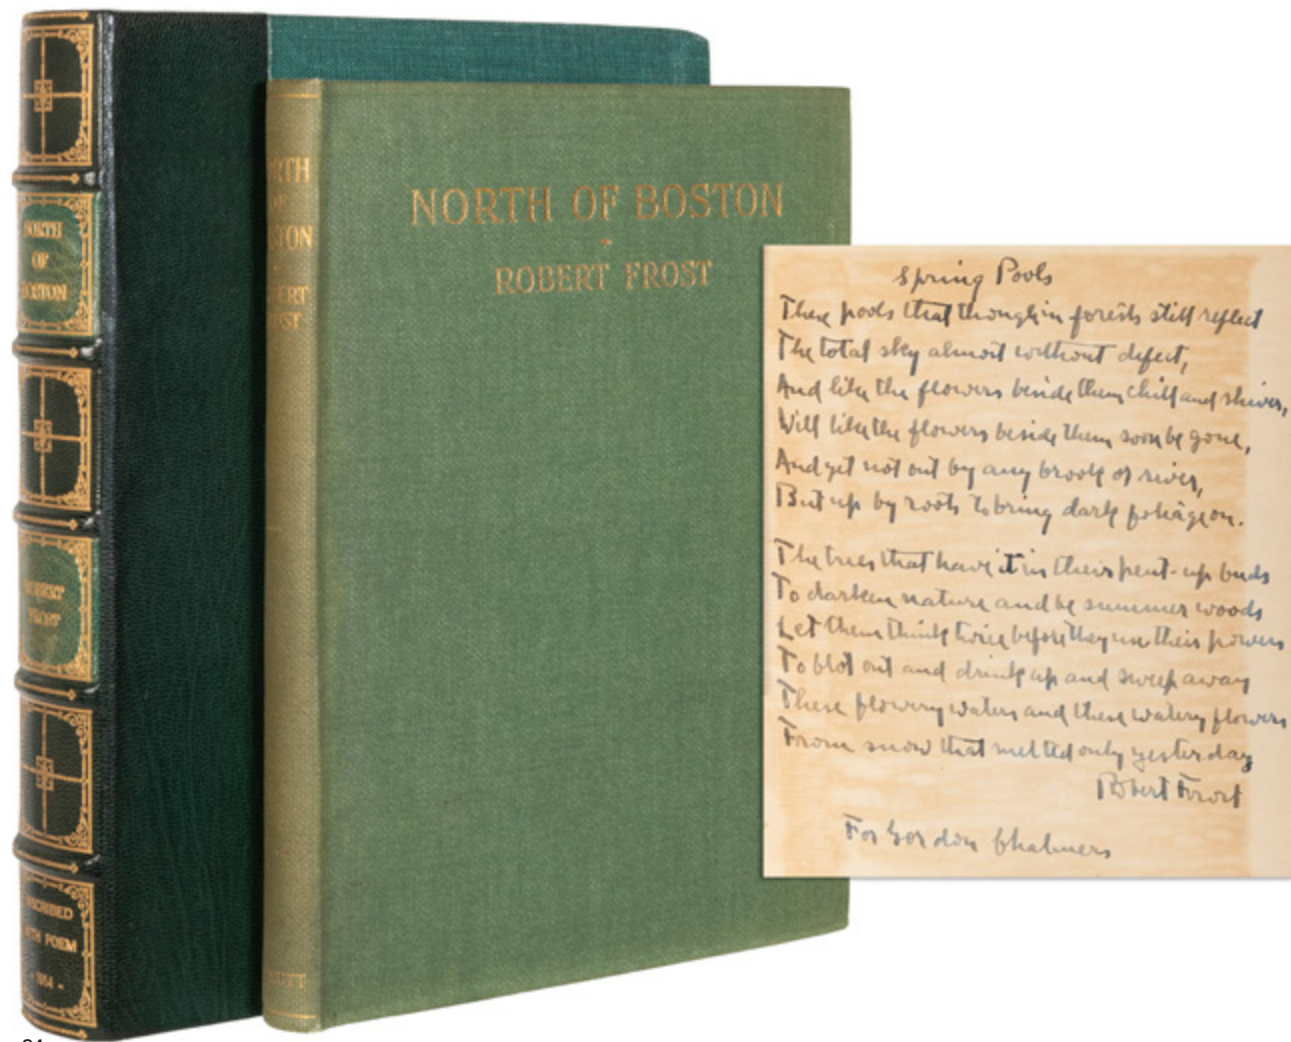 NORTH
OF
BOSTON
ROBERT
FROST
INSCRIBED
WITH POEM
- 1914 -
RTH
OF
TON
BERT
OST
NUTT
NORTH OF BOSTON
ROBERT FROST
Spring Pools
These pools that though in forests still reflect
The total sky almost without defect,
And like the flowers beside them chill and shiver,
Will like the flowers beside them soon be gone,
And yet not out by any brook or river,
But up by roots to bring dark foliage on.
The trees that have it in their pent-up buds
To darken nature and be summer woods
Let them think twice before they use their powers
To blot out and drink up and sweep away
These flowery waters and these watery flowers
From snow that melted only yesterday
Robert Frost
For Gordon Chalmers